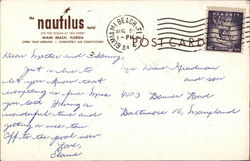 the
nautilus
hotel
ON THE OCEAN AT 18th STREET
MIAMI BEACH, FLORIDA
OPEN YEAR AROUND — COMPLETELY AIR CONDITIONED
MIAMI BEACH, FLA.
1 PM
195
POSTCARD
Dear Mother and
Just a line to
let you know that
everything is fine. Miss
you both. Having a
wonderful time and
getting a nice tan.
Off to the pool now.
Love,
Elaine
Mrs. Friedman
and son
4003 Boarman Road
Baltimore 15, Maryland